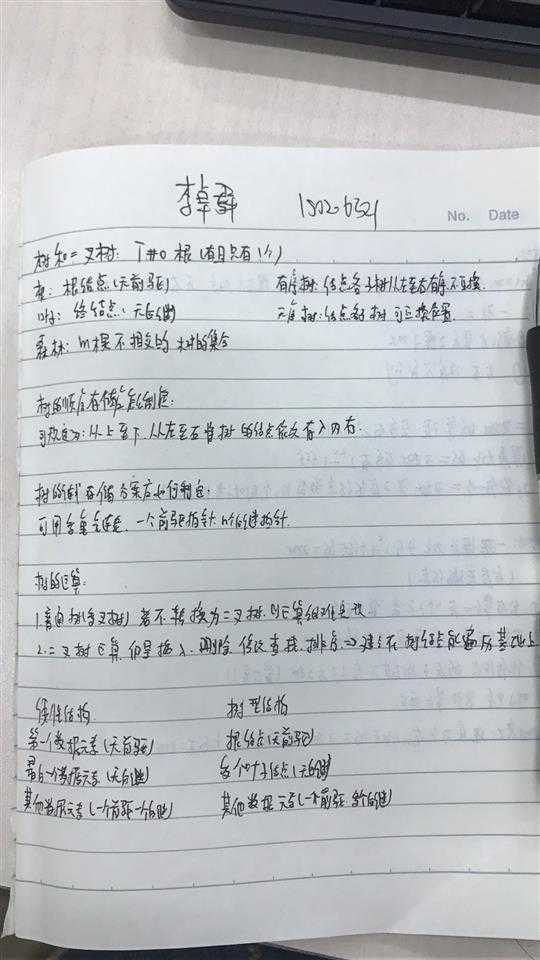 李卓舜 15020521
No. Date
树和二叉树: T#0 根(有且只有1个)
根: 根结点(无前驱) 有序树:结点各子树从左至右有序,不互换.
叶子: 终结点(无后继) 无序树:结点各子树可互换位置.
森林: m棵不相交的树的集合
树的顺序存储怎么制定:
可规定为:从上至下,从左至右将树的结点依次存入内存.
树的链式存储方案应如何制定:
可用多重链表: 一个前驱指针,n个后继指针.
树的运算:
1.普通树(多叉树) 若不转换为二叉树,则运算很难实现
2.二叉树运算仍是插入、删除、修改、查找、排序 ⇒建立在树结点能遍历基础上
线性结构 树型结构
第一个数据元素(无前驱) 根结点(无前驱)
最后一个数据元素(无后继) 多个叶子结点(无后继)
其他数据元素(一个前驱一个后继) 其他数据元素(一个前驱,多个后继)